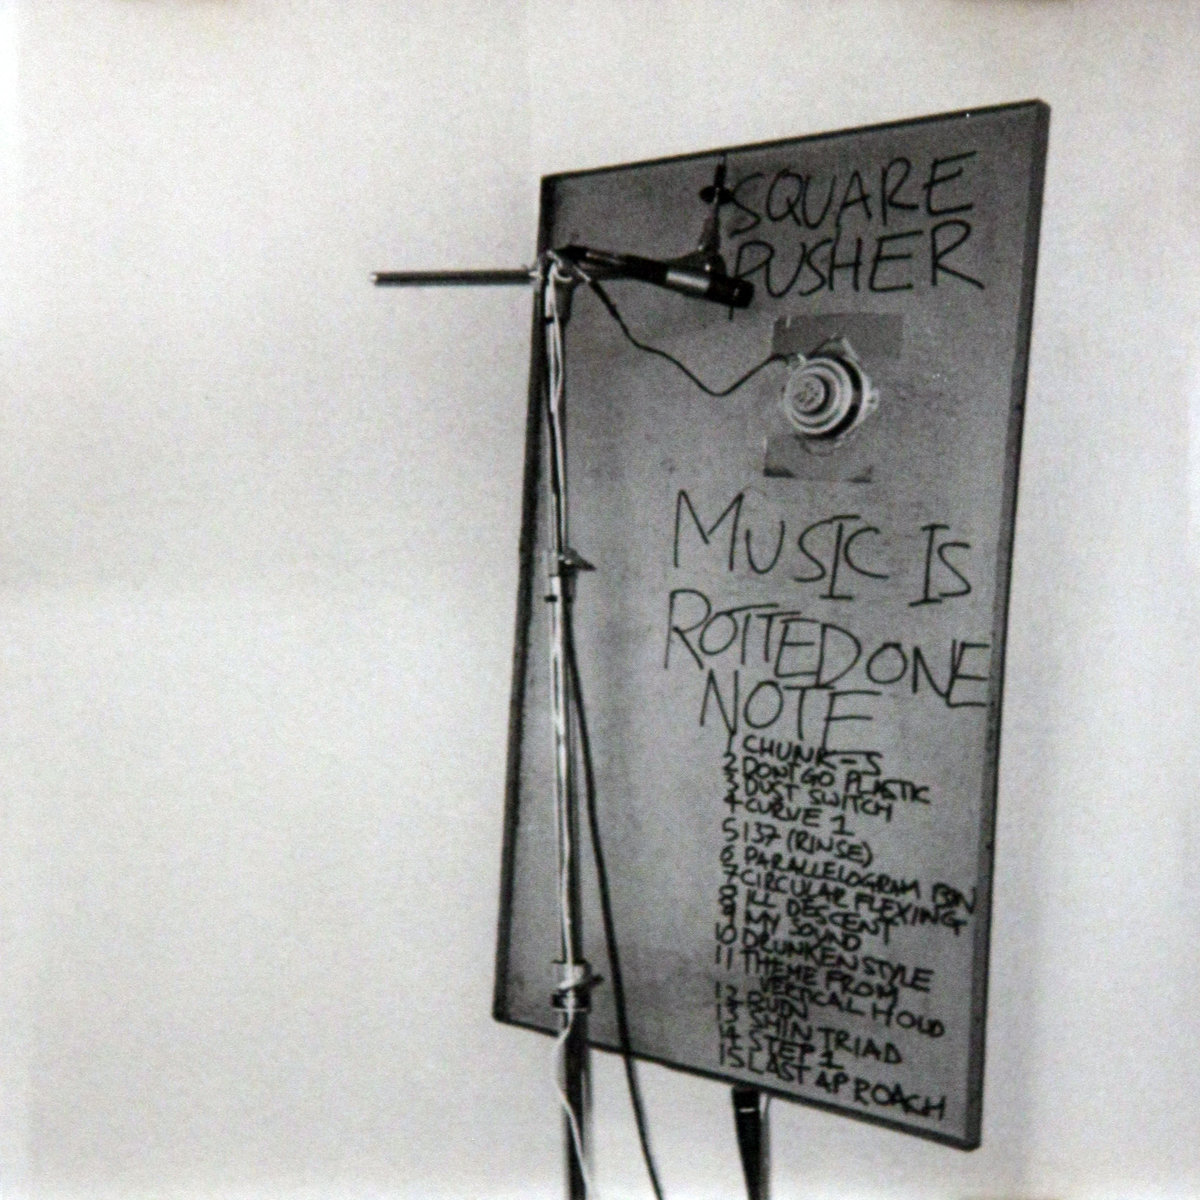 SQUARE
PUSHER
MUSIC IS
ROTTED ONE
NOTE
1 CHUNK-S
2 DONT GO PLASTIC
3 DUST SWITCH
4 CURVE 1
5 137 (RINSE)
6 PARALLELOGRAM BIN
7 CIRCULAR FLEXING
8 ILL DESCENT
9 MY SOUND
10 DRUNKEN STYLE
11 THEME FROM
VERTICAL HOLD
12 RUIN
13 SHIN TRIAD
14 STEP 1
15 LAST APROACH